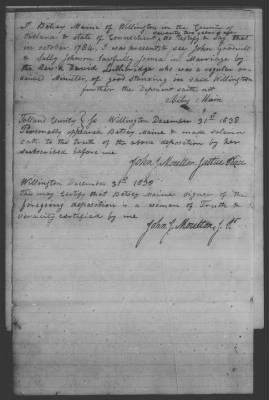 I Betsey Maine of Willington in the County of
Tolland & state of Connecticut, seventy two years of age do testify & say that
in october 1784, I was present & see John
& Sally Johnson lawfully Joined in Marriage by
the Rev. David who was a regular or-
dained Minister, of good standing in said Willington
further the deponent saith not
Betsy Main
Tolland County Ss Willington December 31st 1838
Personally appeared Betsey Maine & made solemn
oath to the truth of the above deposition by her
subscribed before me
John J. Moulton Justice Peace
Willington December 31st 1838
this may Certify that Betsey Maine signer of the
foregoing deposition is a woman of Truth &
veracity certified by me
John J. Moulton, J. P.